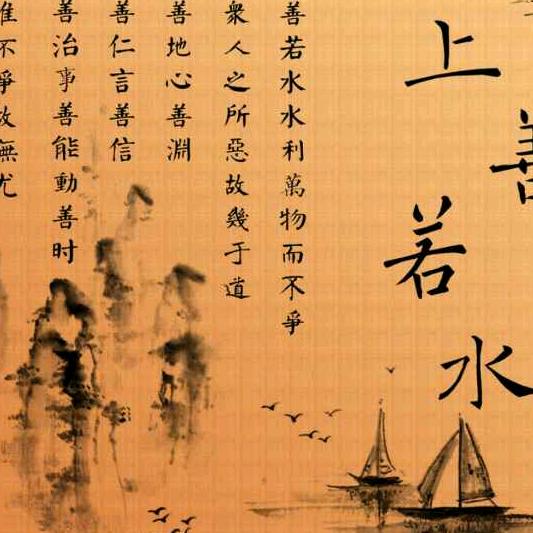 上
善
若
水
善若水水利萬物而不爭
衆人之所惡故幾于道
善地心善淵
善仁言善信
善治事善能動善时
唯不爭故無尤